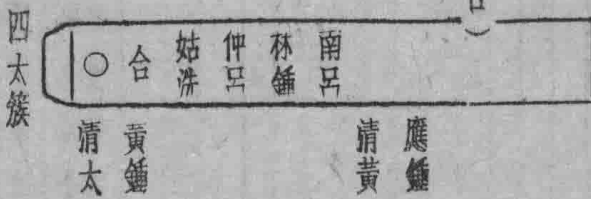 四太簇
○
合
姑洗
仲呂
林鍾
南呂
清太
黃鍾
清黃
應鍾